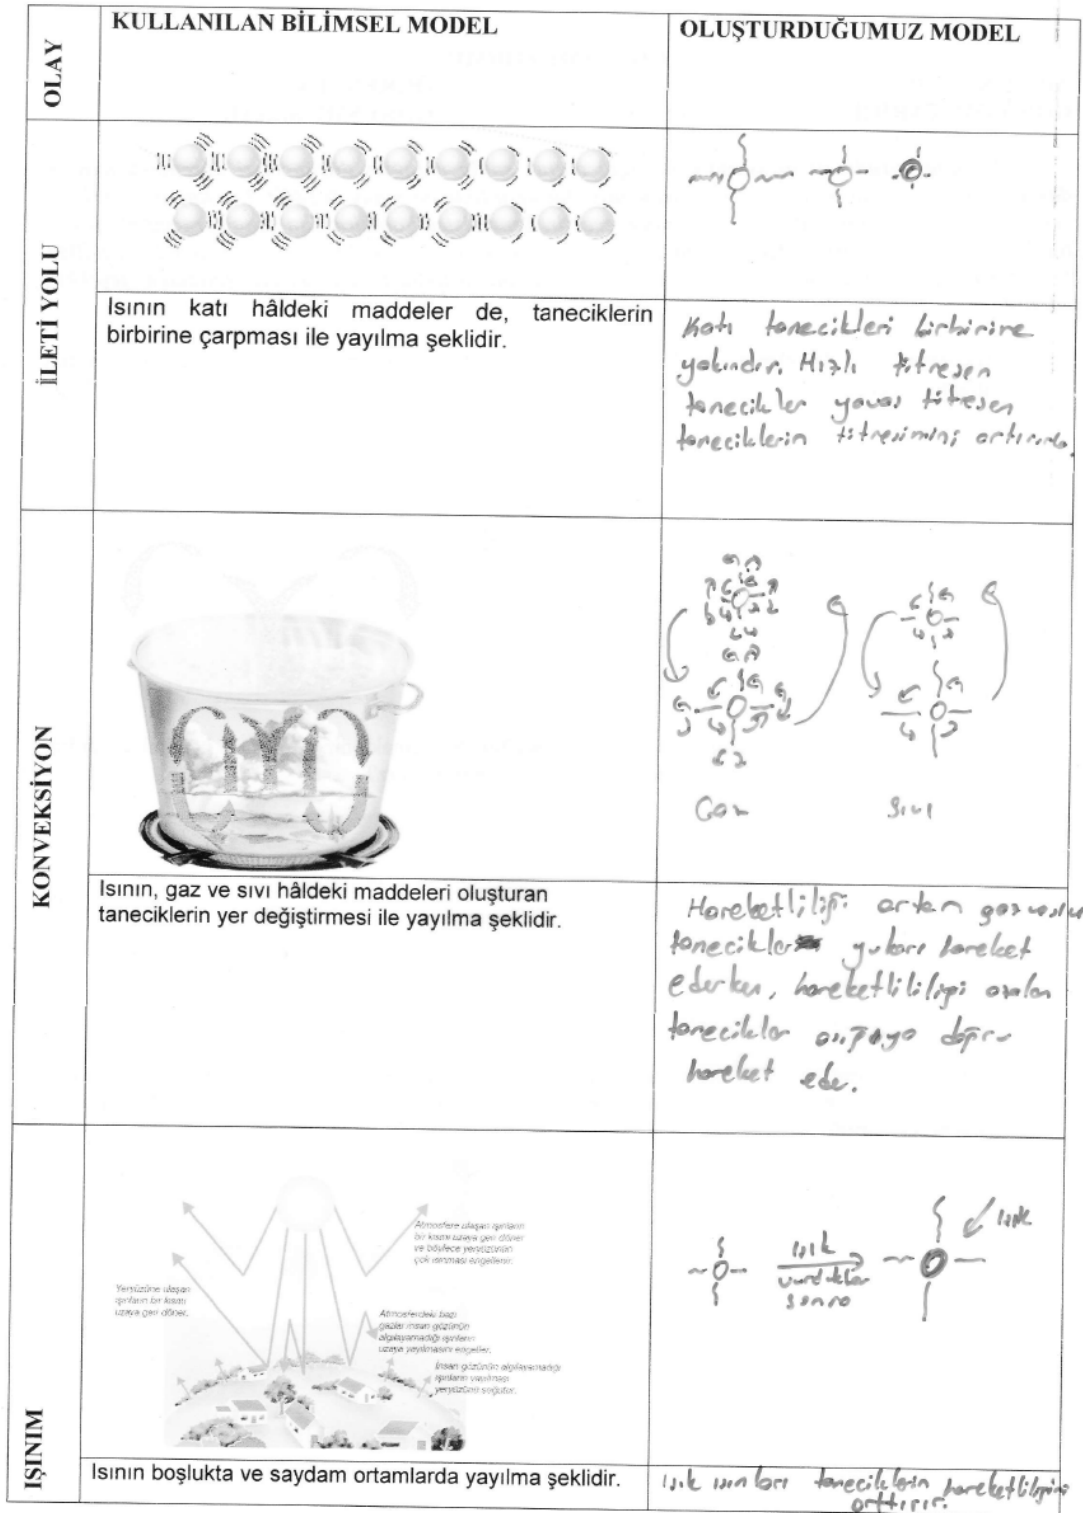 OLAY
KULLANILAN BİLİMSEL MODEL
OLUŞTURDUĞUMUZ MODEL
İLETİ YOLU
Isının katı hâldeki maddeler de, taneciklerin
birbirine çarpması ile yayılma şeklidir.
Katı tanecikleri birbirine
yakındır. Hızlı titreşen
tanecikler yavaş titreşen
taneciklerin titreşimini
KONVEKSİYON
Gaz
Sıvı
Isının, gaz ve sıvı hâldeki maddeleri oluşturan
taneciklerin yer değiştirmesi ile yayılma şeklidir.
Hareketliliği artan gaz
tanecikler yukarı hareket
ederken, azalan
tanecikler doğru
hareket eder.
IŞINIM
Atmosfere ulaşan ışınların
bir kısmı uzaya geri döner
ve böylece yeryüzünün
çok ısınması engellenir.
Yeryüzüne ulaşan
ışınların bir kısmı
uzaya geri döner.
Atmosferdeki bazı
gazlar insan gözünün
algılayamadığı ışınların
uzaya yayılmasını engeller.
İnsan gözünün algılayamadığı
ışınların yayılması
yeryüzünü soğutur.
ışık
vurduktan
sonra
ışık
Isının boşlukta ve saydam ortamlarda yayılma şeklidir.
Işık ışınları taneciklerin hareketliliğini
arttırır.